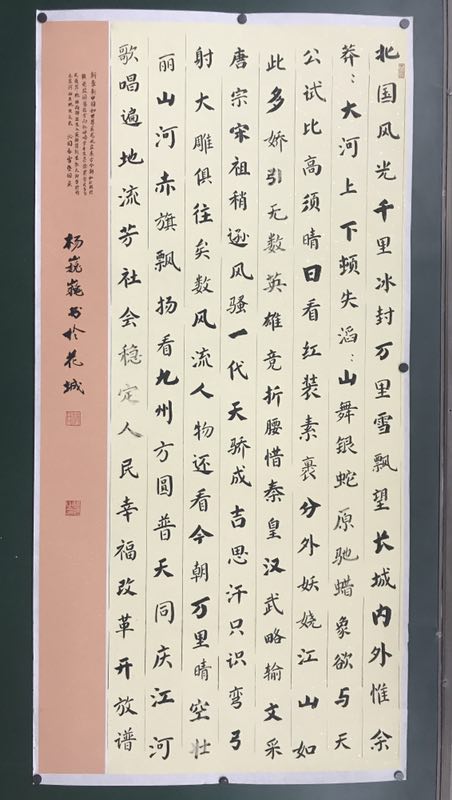 北国风光千里冰封万里雪飘望长城内外惟余
莽〻大河上下顿失滔〻山舞银蛇原驰蜡象欲与天
公试比高须晴日看红装素裹分外妖娆江山如
此多娇引无数英雄竞折腰惜秦皇汉武略输文采
唐宗宋祖稍逊风骚一代天骄成吉思汗只识弯弓
射大雕俱往矣数风流人物还看今朝万里晴空壮
丽山河赤旗飘扬看九州方圆普天同庆江河
歌唱遍地流芳社会稳定人民幸福改革开放谱
杨巍巍书於花城